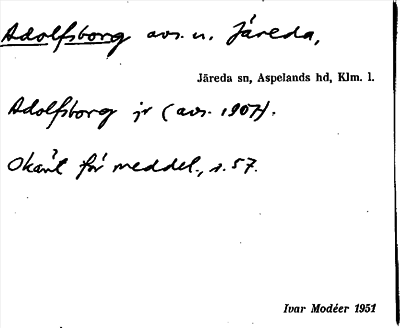 Adolfsborg avs. u. Järeda,
Järeda sn, Aspelands hd, Klm. l.
Adolfsborg jr (avs. 1907).
Okänt för meddel., s. 57.
Ivar Modéer 1951